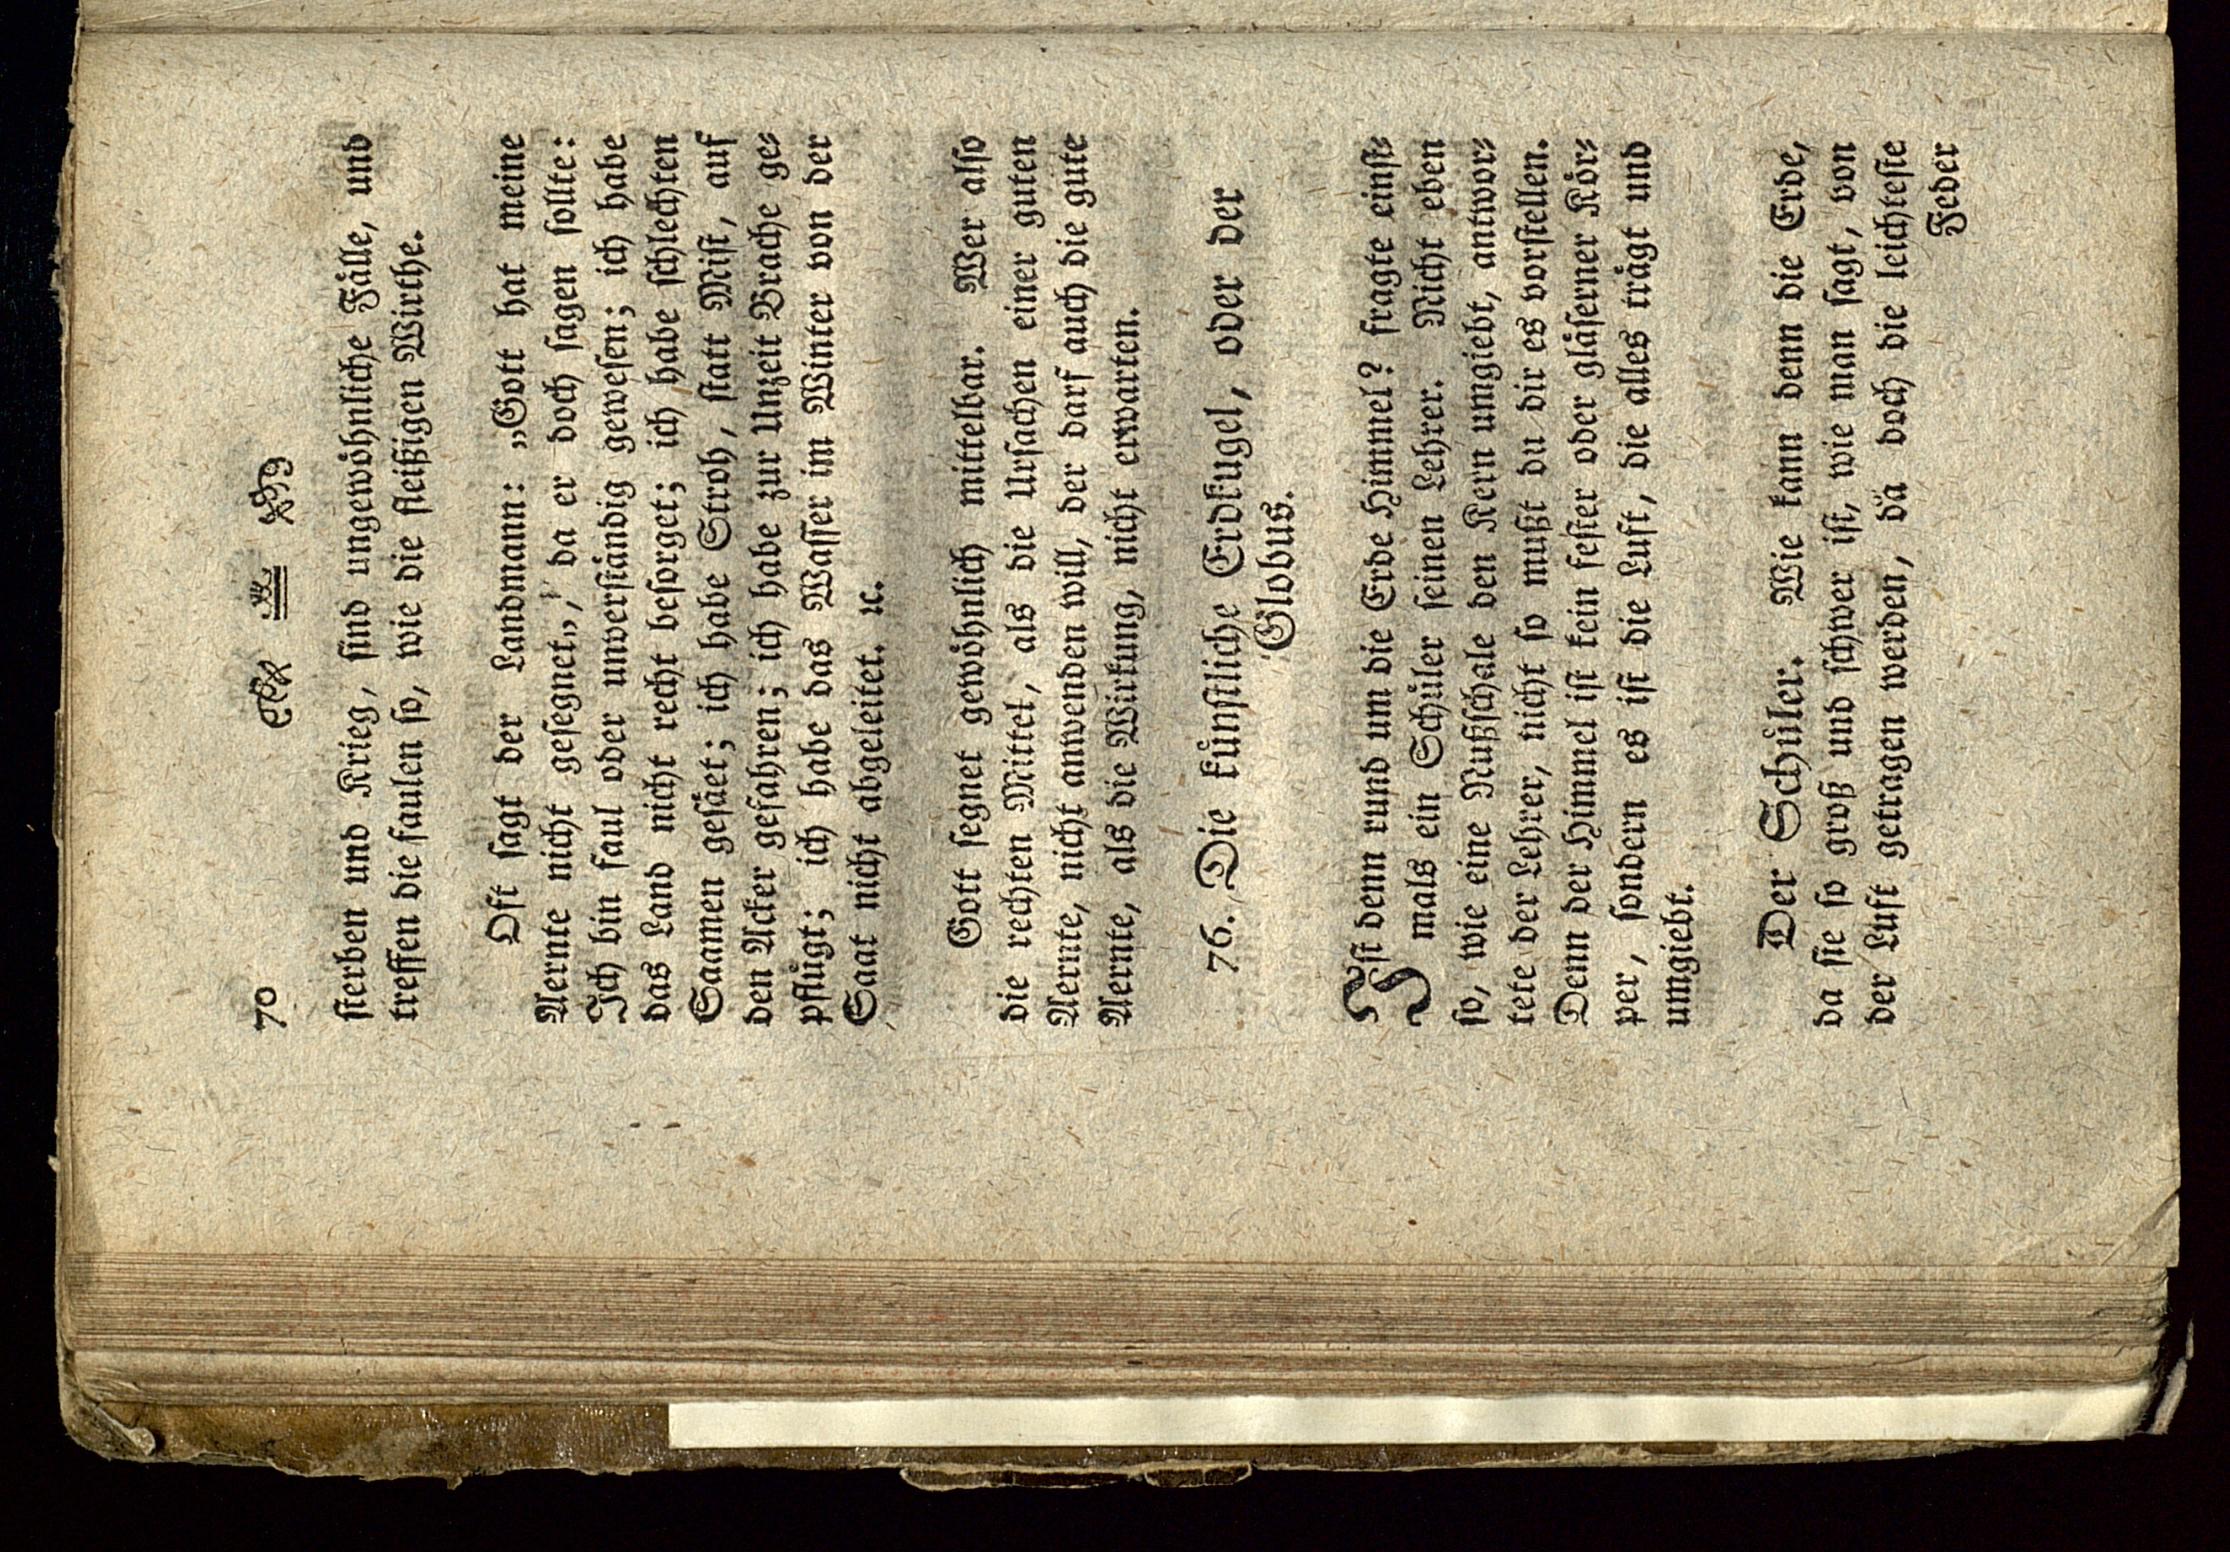 70
ſterben und Krieg, ſind ungewöhnliche Fälle, und
treffen die faulen ſo, wie die fleißigen Wirthe.
Oft ſagt der Landmann: „Gott hat meine
Aernte nicht geſegnet„, da er doch ſagen ſollte:
Ich bin faul oder unverſtändig geweſen; ich habe
das Land nicht recht beſorget; ich habe ſchlechten
Saamen geſäet; ich habe Stroh, ſtatt Miſt, auf
den Acker gefahren; ich habe zur Unzeit Brache ge⸗
pflügt; ich habe das Waſſer im Winter von der
Saat nicht abgeleitet. ꝛc.
Gott ſegnet gewöhnlich mittelbar. Wer alſo
die rechten Mittel, als die Urſachen einer guten
Aernte, nicht anwenden will, der darf auch die gute
Aernte, als die Wirkung, nicht erwarten.
76. Die künſtliche Erdkugel, oder der
Globus.
Iſt denn rund um die Erde Himmel? fragte einſt⸗
mals ein Schüler ſeinen Lehrer. Nicht eben
ſo, wie eine Nußſchale den Kern umgiebt, antwor⸗
tete der Lehrer, nicht ſo mußt du dir es vorſtellen.
Denn der Himmel iſt kein feſter oder gläſerner Kör⸗
per, ſondern es iſt die Luft, die alles trägt und
umgiebt.
Der Schüler. Wie kann denn die Erde,
da ſie ſo groß und ſchwer iſt, wie man ſagt, von
der Luft getragen werden, da doch die leichteſte
Feder